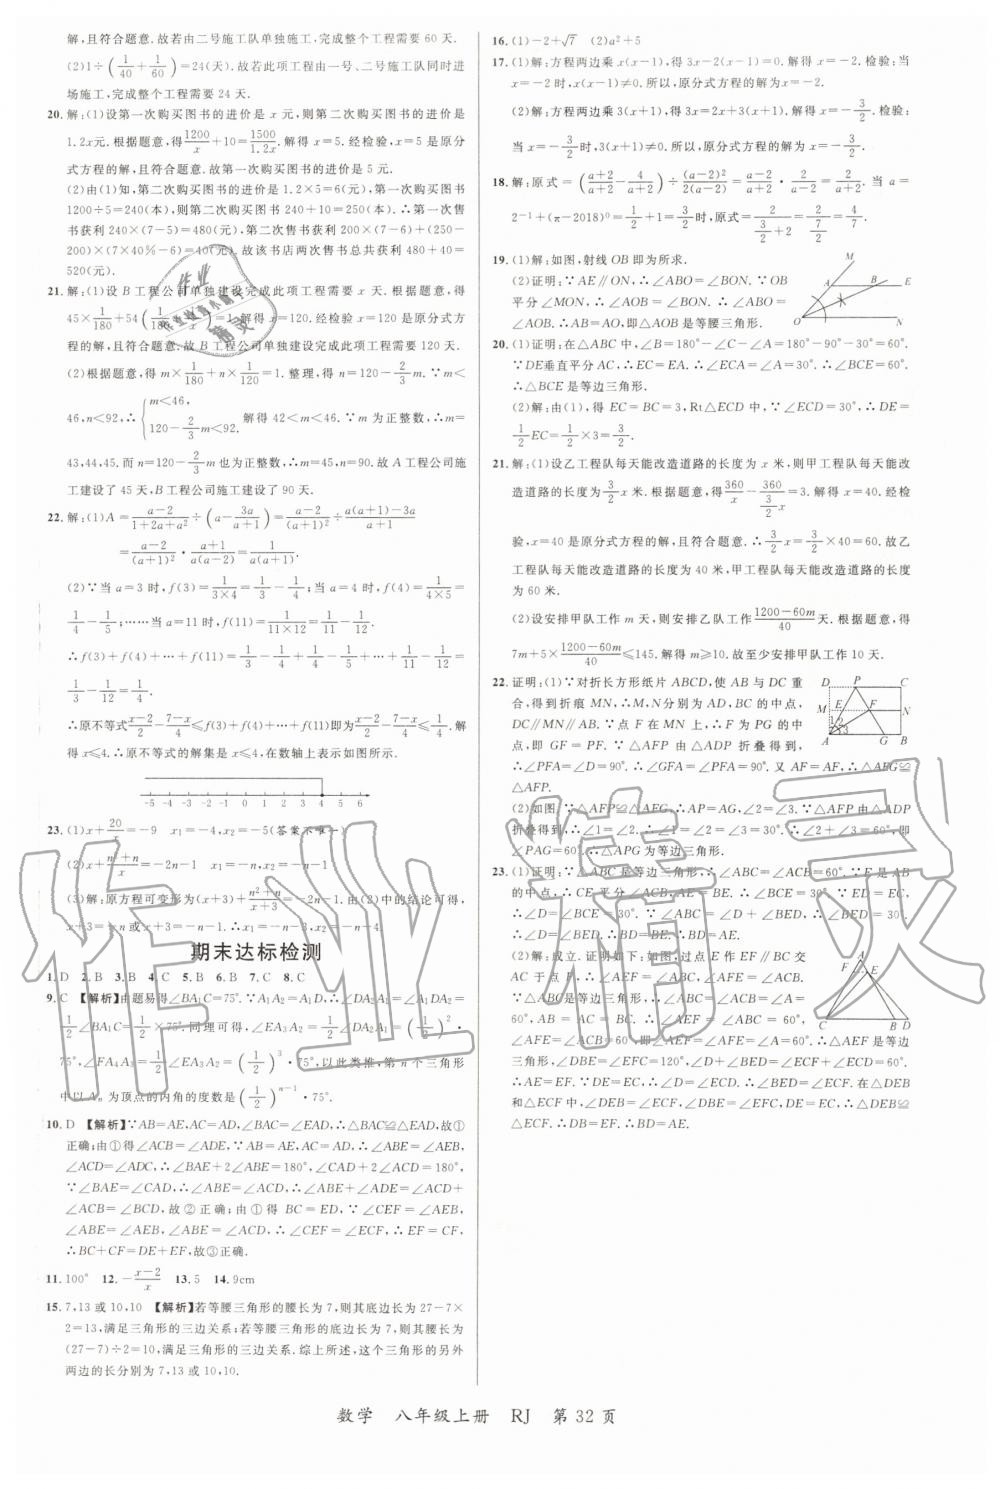 解,且符合题意.故若由二号施工队单独施工,完成整个工程需要 60 天.
(2)1÷(1/40+1/60)=24(天).故若此项工程由一号、二号施工队同时进
场施工,完成整个工程需要 24 天.
20.解:(1)设第一次购买图书的进价是 x 元,则第二次购买图书的进价是
1.2x元.根据题意,得1200/x+10=1500/1.2x.解得 x=5.经检验,x=5 是原分
式方程的解,且符合题意.故第一次购买图书的进价是 5 元.
(2)由(1)知,第二次购买图书的进价是 1.2×5=6(元),第一次购买图书
1200÷5=240(本),则第二次购买图书 240+10=250(本).∴第一次售
书获利 240×(7-5)=480(元),第二次售书获利 200×(7-6)+(250-
200)×(7×40%-6)=40(元).故该书店两次售书总共获利 480+40=
520(元).
21.解:(1)设 B 工程公司单独建设完成此项工程需要 x 天.根据题意,得
45×1/180+54(1/180+1/x)=1.解得 x=120.经检验,x=120 是原分式方
程的解,且符合题意.故 B 工程公司单独建设完成此项工程需要 120 天.
(2)根据题意,得 m×1/180+n×1/120=1.整理,得 n=120-2/3m.∵m<
46,n<92,∴{m<46, 120-2/3m<92. 解得 42<m<46.∵m 为正整数,∴m=
43,44,45.而 n=120-2/3m 也为正整数,∴m=45,n=90.故 A 工程公司施
工建设了 45 天,B 工程公司施工建设了 90 天.
22.解:(1)A=a-2/1+2a+a²÷(a-3a/a+1)=a-2/(a+1)²÷a(a+1)-3a/a+1
=a-2/(a+1)²·a+1/a(a-2)=1/a(a+1).
(2)∵当 a=3 时,f(3)=1/3×4=1/3-1/4;当 a=4 时,f(4)=1/4×5=
1/4-1/5;……当 a=11 时,f(11)=1/11×12=1/11-1/12.
∴f(3)+f(4)+…+f(11)=1/3-1/4+1/4-1/5+…+1/11-1/12=
1/3-1/12=1/4.
∴原不等式x-2/2-7-x/4≤f(3)+f(4)+…+f(11)即为x-2/2-7-x/4≤1/4.解
得 x≤4.∴原不等式的解集是 x≤4,在数轴上表示如图所示.
-5 -4 -3 -2 -1 0 1 2 3 4 5 6
23.(1)x+20/x=-9 x₁=-4,x₂=-5(答案不唯一)
(2)x+n²+n/x=-2n-1 x₁=-n,x₂=-n-1
(3)解:原方程可变形为(x+3)+n²+n/x+3=-2n-1.由(2)中的结论可得,
x+3=-n或x+3=-n-1.∴x₁=-n-3,x₂=-n-4.
期末达标检测
1.D 2.B 3.B 4.C 5.B 6.B 7.C 8.C
9.C 【解析】由题易得∠BA₁C=75°.∵A₁A₂=A₁D,∴∠DA₂A₁=∠A₁DA₂=
1/2∠BA₁C=1/2×75°.同理可得,∠EA₃A₂=∠DA₂A₁=(1/2)²·
75°,∠FA₄A₃=1/2∠EA₃A₂=(1/2)³·75°,以此类推,第 n 个三角形
中以 Aₙ 为顶点的内角的度数是(1/2)ⁿ⁻¹·75°.
10.D 【解析】∵AB=AE,AC=AD,∠BAC=∠EAD,∴△BAC≌△EAD,故①
正确;由①得∠ACB=∠ADE,∵AB=AE,AC=AD,∴∠ABE=∠AEB,
∠ACD=∠ADC,∴∠BAE+2∠ABE=180°,∠CAD+2∠ACD=180°.
∵∠BAE=∠CAD,∴∠ABE=∠ACD,∴∠ABE+∠ADE=∠ACD+
∠ACB=∠BCD,故②正确;由①得 BC=ED,∵∠CEF=∠AEB,
∠ABE=∠AEB,∠ABE=∠ACD,∴∠CEF=∠ECF,∴EF=CF,
∴BC+CF=DE+EF,故③正确.
11.100° 12.-x-2/x 13.5 14.9cm
15.7,13或10,10 【解析】若等腰三角形的腰长为7,则其底边长为27-7×
2=13,满足三角形的三边关系;若等腰三角形的底边长为7,则其腰长为
(27-7)÷2=10,满足三角形的三边关系.综上所述,这个三角形的另外
两边的长分别为7,13或10,10.
16.(1)-2+√7 (2)a²+5
17.(1)解:方程两边乘 x(x-1),得3x-2(x-1)=0.解得 x=-2.检验:当
x=-2时,x(x-1)≠0.所以,原分式方程的解为x=-2.
(2)解:方程两边乘 3(x+1),得 3x=2x+3(x+1).解得 x=-3/2.检验:
当 x=-3/2时,3(x+1)≠0.所以,原分式方程的解为x=-3/2.
18.解:原式=(a+2/a+2-4/a+2)÷(a-2)²/2(a-2)=a-2/a+2·2/a-2=2/a+2.当 a=
2⁻¹+(π-2018)⁰=1/2+1=3/2时,原式=2/3/2+2=2/7/2=4/7.
19.(1)解:如图,射线 OB 即为所求.
(2)证明:∵AE∥ON,∴∠ABO=∠BON.∵OB
平分∠MON,∴∠AOB=∠BON,∴∠ABO=
∠AOB.∴AB=AO,即△AOB是等腰三角形.
M
A B E
O N
20.(1)证明:在△ABC 中,∠B=180°-∠C-∠A=180°-90°-30°=60°.
∵DE垂直平分 AC,∴EC=EA.∴∠ECA=∠A=30°.∴∠BCE=60°.
∴△BCE 是等边三角形.
(2)解:由(1),得 EC=BC=3,Rt△ECD 中,∵∠ECD=30°,∴DE=
1/2EC=1/2×3=3/2.
21.解:(1)设乙工程队每天能改造道路的长度为 x 米,则甲工程队每天能改
造道路的长度为3/2x 米.根据题意,得360/x-360/3/2x=3.解得 x=40.经检
验,x=40 是原分式方程的解,且符合题意.∴3/2x=3/2×40=60.故乙
工程队每天能改造道路的长度为 40 米,甲工程队每天能改造道路的长度
为 60 米.
(2)设安排甲队工作 m 天,则安排乙队工作1200-60m/40天.根据题意,得
7m+5×1200-60m/40≤145.解得 m≥10.故至少安排甲队工作 10 天.
22.证明:(1)∵对折长方形纸片 ABCD,使 AB 与 DC 重
合,得到折痕 MN,∴M,N分别为 AD,BC 的中点,
DC∥MN∥AB.∵点 F 在 MN 上,∴F 为 PG 的中
点,即 GF=PF.∵△AFP 由△ADP 折叠得到,
∴∠PFA=∠D=90°.∴∠GFA=∠PFA=90°.又 AF=AF,∴△AFG≌
△AFP.
D P C
M F N
1 2 3
A G B
(2)如图.∵△AFP≌△AFG,∴AP=AG,∠2=∠3.∵△AFP由△ADP
折叠得到,∴∠1=∠2.∴∠1=∠2=∠3=30°.∴∠2+∠3=60°,即
∠PAG=60°.∴△APG为等边三角形.
23.(1)证明:∵△ABC是等边三角形,∴∠ABC=∠ACB=60°.∵E是AB
的中点,∴CE 平分∠ACB,AE=BE.∴∠BCE=30°.∵ED=EC,
∴∠D=∠BCE=30°.∵∠ABC=∠D+∠BED,∴∠BED=30°.
∴∠D=∠BED.∴BD=BE.∴AE=DB.
(2)解:成立.证明如下:如图,过点 E 作 EF∥BC 交
AC 于点 F,∴∠AEF=∠ABC,∠AFE=∠ACB.
∵△ABC是等边三角形,∴∠ABC=∠ACB=∠A=
60°,∴∠AEF=∠ABC=60°,∠AFE=∠ACB=60°,即∠AEF=
∠AFE=∠A=60°.∴△AEF是等边三
角形.∴∠DBE=∠EFC=120°,∠D+∠BED=∠ECF+∠ECD=60°.
∴AE=EF.∵DE=EC,∴∠D=∠ECD.∴∠BED=∠ECF.在△DEB
和△ECF中,∠DBE=∠EFC,∠BED=∠ECF,DE=EC,∴△DEB≌
△ECF.∴DB=EF.∴DB=AE.
A
F E
C B D
数学 八年级上册 RJ 第 32 页
作业精灵